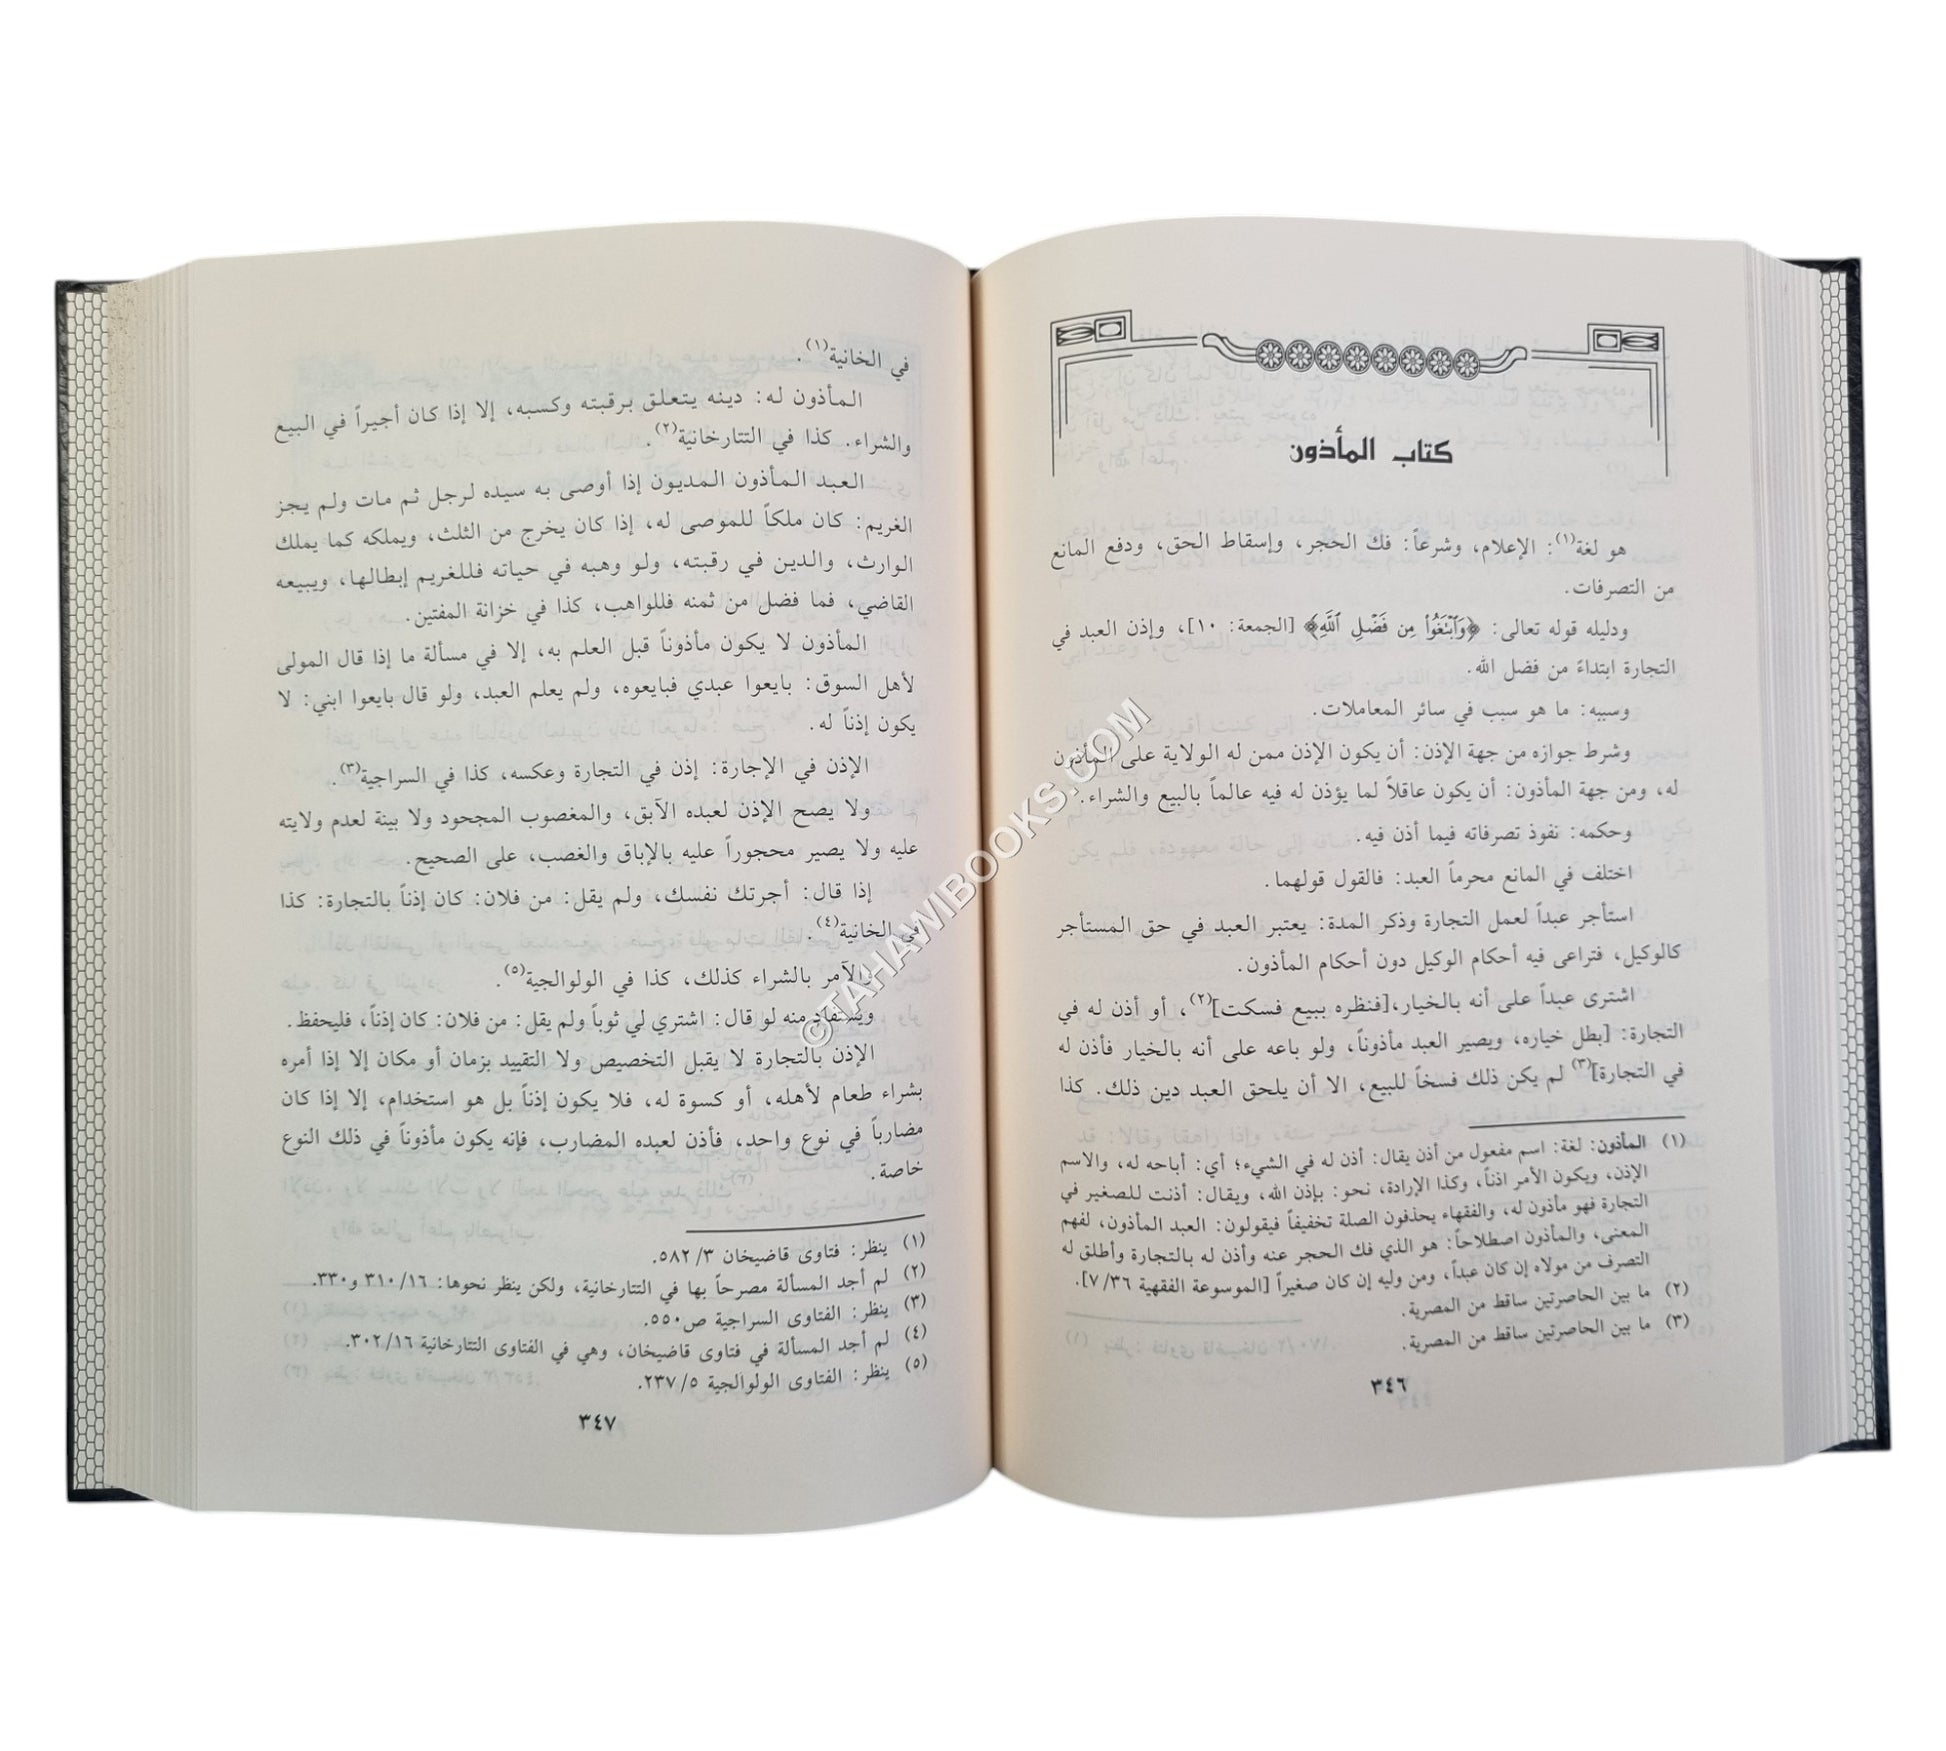 كتاب المأذون
هو لغة(١): الإعلام، وشرعاً: فك الحجر، وإسقاط الحق، ودفع المانع
من التصرفات.
ودليله قوله تعالى: ﴿وَٱبۡتَغُواْ مِن فَضۡلِ ٱللَّهِ﴾ [الجمعة: ١٠]، وإذن العبد في
التجارة ابتداءً من فضل الله.
وسببه: ما هو سبب في سائر المعاملات.
وشرط جوازه من جهة الإذن: أن يكون الإذن ممن له الولاية على المأذون
له، ومن جهة المأذون: أن يكون عاقلاً لما يؤذن له فيه عالماً بالبيع والشراء.
وحكمه: نفوذ تصرفاته فيما أذن فيه.
اختلف في المانع محرماً العبد: فالقول قولهما.
استأجر عبداً لعمل التجارة وذكر المدة: يعتبر العبد في حق المستأجر
كالوكيل، فتراعى فيه أحكام الوكيل دون أحكام المأذون.
اشترى عبداً على أنه بالخيار،[فنظره يبيع فسكت](٢)، أو أذن له في
التجارة: [بطل خياره، ويصير العبد مأذوناً، ولو باعه على أنه بالخيار فأذن له
في التجارة](٣) لم يكن ذلك فسخاً للبيع، الا أن يلحق العبد دين ذلك. كذا
(١) المأذون: لغة: اسم مفعول من أذن يقال: أذن له في الشيء؛ أي: أباحه له، والاسم
الإذن، ويكون الأمر اذناً، وكذا الإرادة، نحو: بإذن الله، ويقال: أذنت للصغير في
التجارة فهو مأذون له، والفقهاء يحذفون الصلة تخفيفاً فيقولون: العبد المأذون، لفهم
المعنى، والمأذون اصطلاحاً: هو الذي فك الحجر عنه وأذن له بالتجارة وأطلق له
التصرف من مولاه إن كان عبداً، ومن وليه إن كان صغيراً [الموسوعة الفقهية ٧/٣٦].
(٢) ما بين الحاصرتين ساقط من المصرية.
(٣) ما بين الحاصرتين ساقط من المصرية.
٣٤٦
في الخانية(١).
المأذون له: دينه يتعلق برقبته وكسبه، إلا إذا كان أجيراً في البيع
والشراء. كذا في التتارخانية(٢).
العبد المأذون المديون إذا أوصى به سيده لرجل ثم مات ولم يجز
الغريم: كان ملكاً للموصى له، إذا كان يخرج من الثلث، ويملكه كما يملك
الوارث، والدين في رقبته، ولو وهبه في حياته فللغريم إبطالها، ويبيعه
القاضي، فما فضل من ثمنه فللواهب، كذا في خزانة المفتين.
المأذون لا يكون مأذوناً قبل العلم به، إلا في مسألة ما إذا قال المولى
لأهل السوق: بايعوا عبدي فبايعوه، ولم يعلم العبد، ولو قال بايعوا ابني: لا
يكون إذناً له.
الإذن في الإجارة: إذن في التجارة وعكسه، كذا في السراجية(٣).
ولا يصح الإذن لعبده الآبق، والمغصوب المجحود ولا بينة لعدم ولايته
عليه ولا يصير محجوراً عليه بالإباق والغصب، على الصحيح.
إذا قال: أجرتك نفسك، ولم يقل: من فلان: كان إذناً بالتجارة: كذا
في الخانية(٤).
والآمر بالشراء كذلك، كذا في الولوالجية(٥).
ويستفاد منه لو قال: اشتري لي ثوباً ولم يقل: من فلان: كان إذناً، فليحفظ.
الإذن بالتجارة لا يقبل التخصيص ولا التقييد بزمان أو مكان إلا إذا أمره
بشراء طعام لأهله، أو كسوة له، فلا يكون إذناً بل هو استخدام، إلا إذا كان
مضارباً في نوع واحد، فأذن لعبده المضارب، فإنه يكون مأذوناً في ذلك النوع
خاصة.
(١) ينظر: فتاوى قاضيخان ٣/ ٥٨٢.
(٢) لم أجد المسألة مصرحاً بها في التتارخانية، ولكن ينظر نحوها: ١٦/ ٣١٠ و٣٣٠.
(٣) ينظر: الفتاوى السراجية ص٥٥٠.
(٤) لم أجد المسألة في فتاوى قاضيخان، وهي في الفتاوى التتارخانية ١٦/ ٣٠٢.
(٥) ينظر: الفتاوى الولوالجية ٥/ ٢٣٧.
٣٤٧
©TAHAWIBOOKS.COM